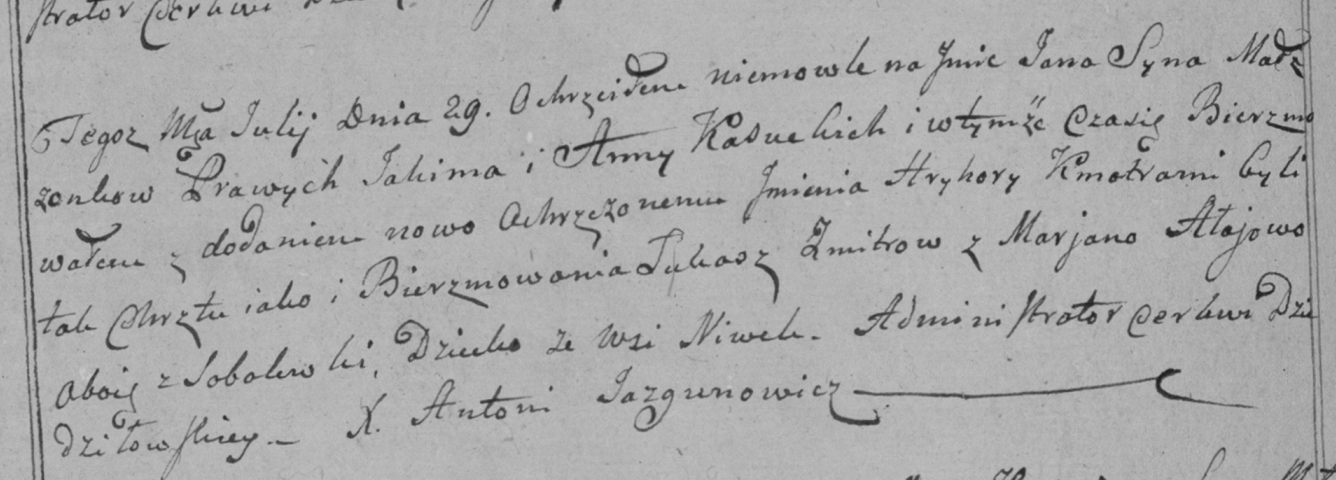 strator Cerkwi
Tegoz Mca Julij Dnia 29. Ochrzciłem niemowle na Jmie Jana Syna Małz
zonkow Prawych Jakima i Anny Kasuckich i wtymże Czasie Bierzmo
wałem z dodaniem nowo Ochrzczonemu Jmienia Hryhory Kmotrami byli
tak Chrztu iako i Bierzmowania Łukasz Zmitrow z Marjano Ałajowo
Oboie z Sobolewki, Dziecko ze wsi Niwek. Administrator Cerkwi Dzie
dziłowskiey. X. Antoni Jazgunowicz